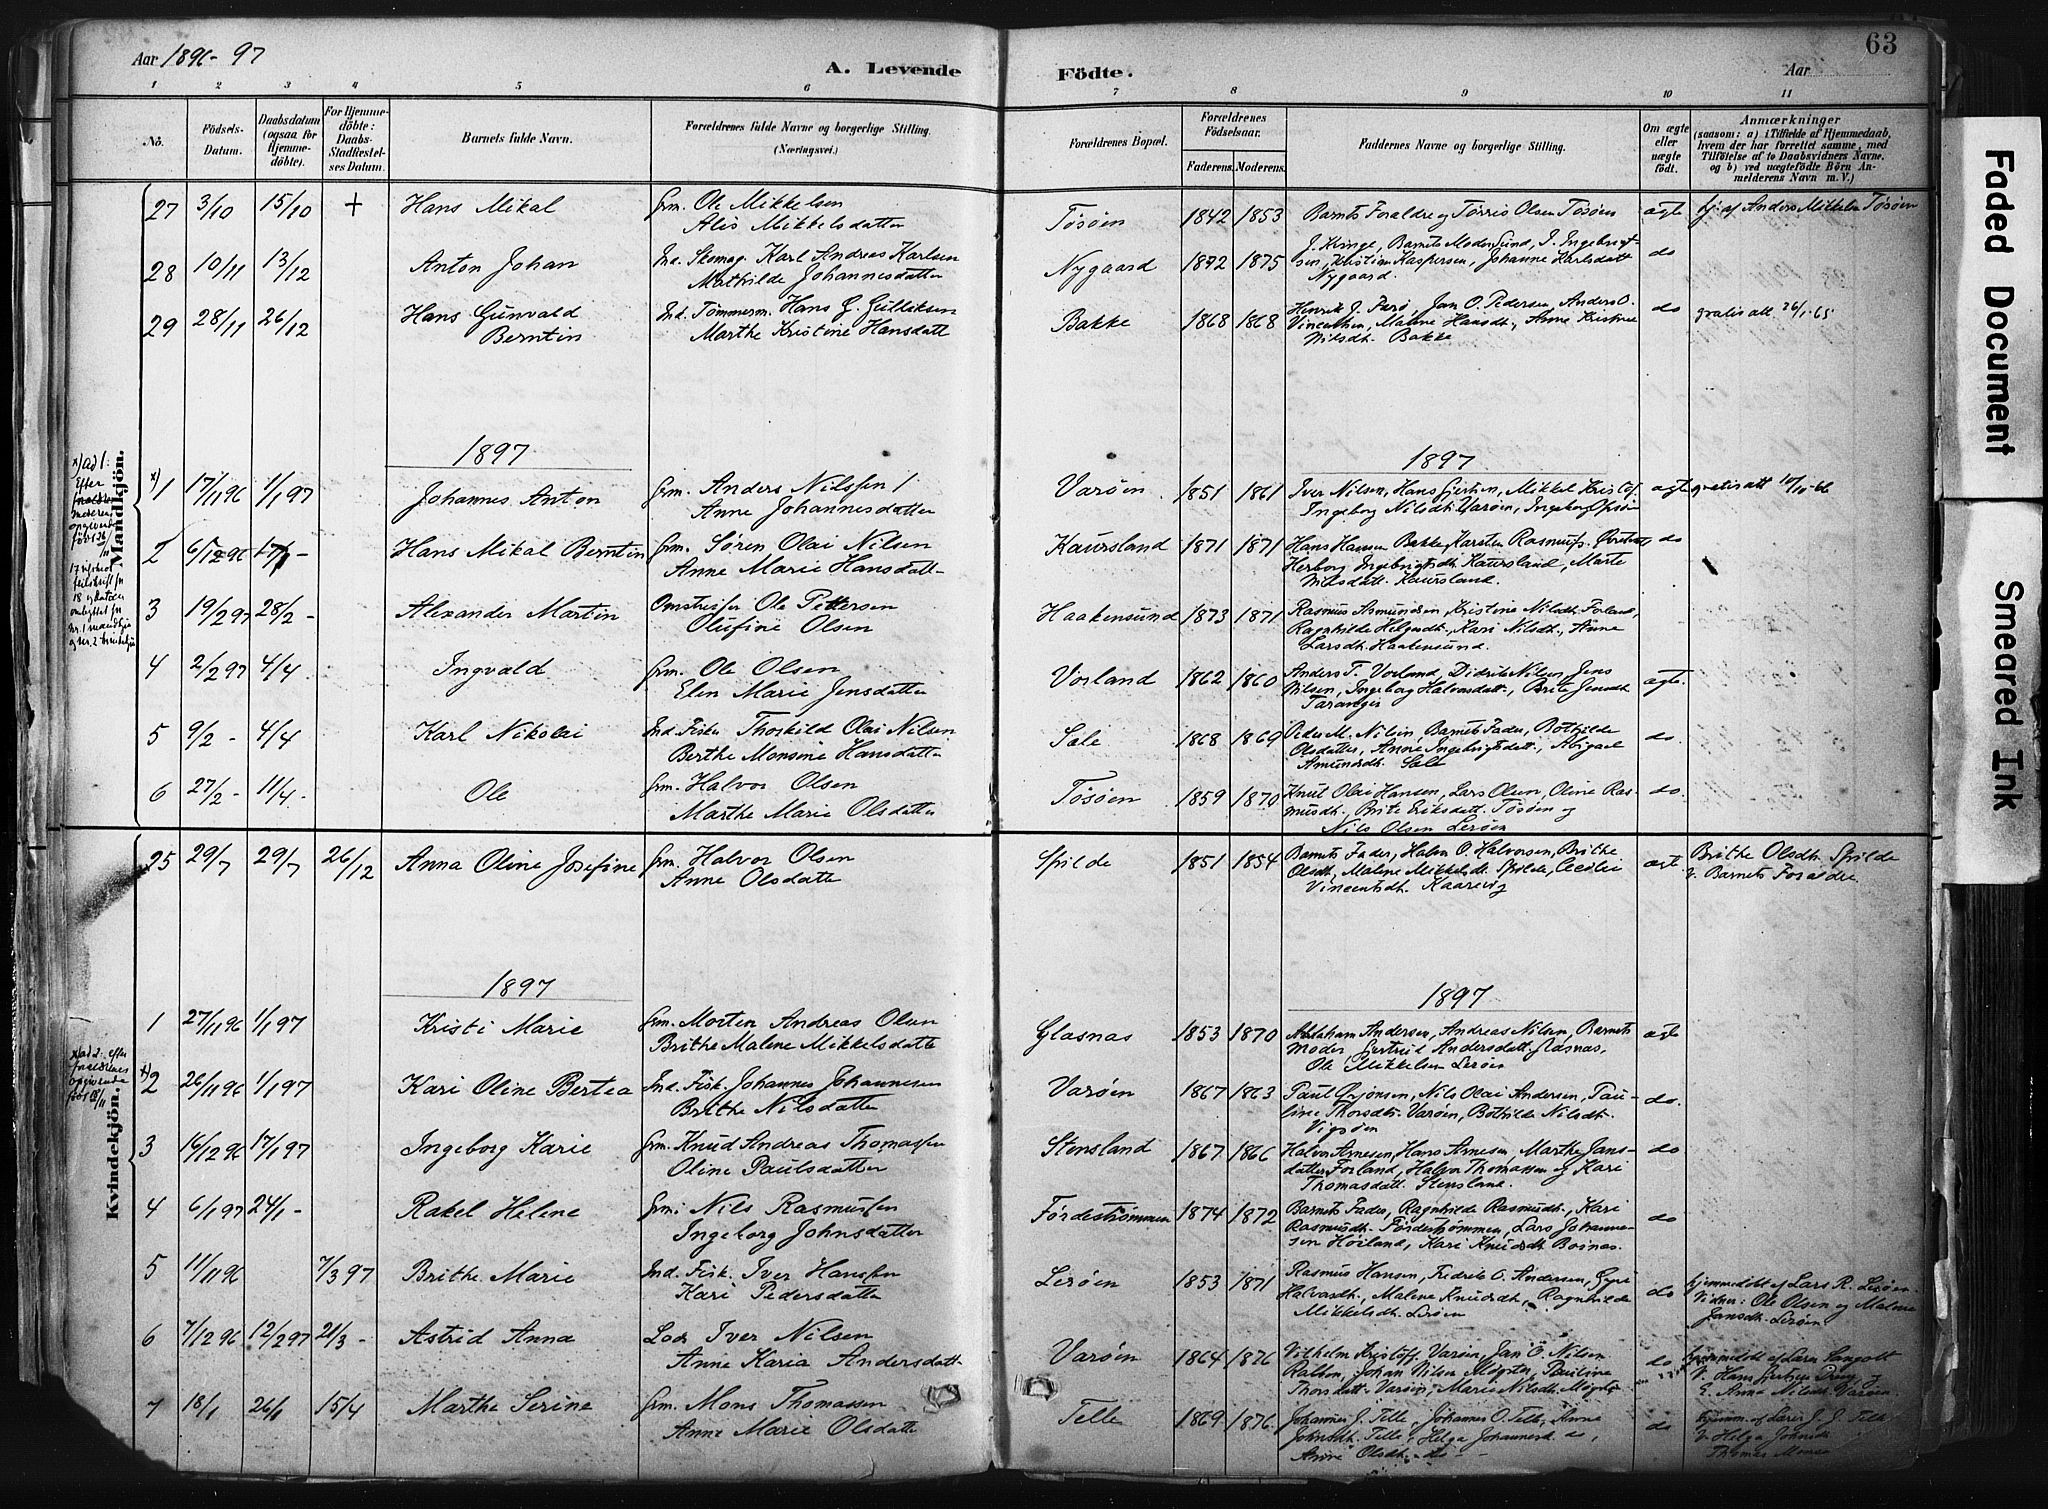 Aar 1896-97
A. Levende Födte.
Aar
63
1 2 3 4 5 6 7 8 9 10 11
No.
Födsels-Datum.
Daabsdatum (ogsaa for Hjemmedöbte).
For Hjemmedöbte: Daabs-Stadfæstelses Datum.
Barnets fulde Navn.
Forældrenes fulde Navne og borgerlige Stilling. (Næringsvei.)
Forældrenes Bopæl.
Forældrenes Födselsaar.
Faderens. Moderens.
Faddernes Navne og borgerlige Stilling.
Om ægte eller uægte födt.
Anmærkninger
(saasom: a) i Tilfælde af Hjemmedaab, hvem der har forrettet samme, med Tilföielse af to Daabsvidners Navne, og b) ved uægtefödte Börn Anmelderens Navn m. V.)
Mandkjön.
27 3/10 15/10 + Hans Mikal Grm. Ole Mikkelsen Tösöen 1842 1853 Barnets Foraldre og Törris Olsen Tösöen ægte hj. af Anders Mikkelsen Tösöen
Alis Mikkelsdatter
28 10/11 13/12 Anton Johan Ind. Skomag. Karl Andreas Karlsen Nygaard 1872 1875 J. Kvinge, Barnets Moder Sund, J. Ingebrigtsen, Kristian Kaspersen, Johanne Karlsdatt Nygaard. do
Mathilde Johannesdatter
29 28/11 26/12 Hans Gunvald Berntin Ind. Tömmerm. Hans G. Gulliksen Bakke 1868 1868 Henrik J. Færö, Jan O. Pedersen, Anders O. Vincentsen, Malene Hansdt., Anne Kristine Nilsdt. Bakke do gratis att 26/1-65
Marthe Kristine Hansdatt
1897
1897
x) 1 17/11 96 1/1 97 Johannes Anton Grm. Anders Nilssen Varöen 1851 1861 Iver Nilsen, Hans Gjertsen, Mikkel Kristof. Ingeborg Nilsdt. Varöen, Ingeborg ægte gratis att 10/10-66
Anne Johannesdatter
2 6/12 96 17/1 - Hans Mikal Berntin Grm. Sören Olai Nilsen Kaursland 1871 1871 Hans Hansen Bakke, Karsten Rasmuss. Herborg Ingebrigtsdt. Kaursland, Marte Nilsdatt. Kaursland. do
Anne Marie Hansdatt.
3 19/2 97 28/2 - Alexander Martin Omstreifer Ole Pettersen Haakensund 1873 1871 Rasmus Asmundsen, Kristine Nilsdt. Forland, Ragnhilde Helgesdt., Kari Nilsdt., Anne Larsdt. Haakensund.
Olufine Olsen
4 2/2 97 4/4 Ingvald Grm. Ole Olsen Vorland 1862 1860 Anders T. Vorland, Didrik Nilsen, Jens Nilsen, Ingeborg Halvorsdatt., Brite Jensdt. Taranger ægte.
Elen Marie Jensdatter
5 9/2 - 4/4 Karl Nikolai Ind. Fisk. Thorkild Olai Nilsen Sale 1868 1869 Peder M. Nilsen, Barnets Fader, Bothilde Olsdatter, Anne Ingebrigtsdatt., Abigael Amundsdt. Sale do.
Berthe Monsine Hansdatter
6 27/2 - 11/4 - Ole Grm. Halvor Olsen Tösöen 1859 1870 Knut Olai Hansen, Lars Olsen, Oline Rasmusdt. Brite Eriksdatt. Tösöen og Nils Olsen Leröen do.
Marthe Marie Olsdatter
25 29/7 29/7 26/12 Anna Oline Josefine Grm. Halvor Olsen Spilde 1851 1854 Barnets Fader, Halvor O. Halvorsen, Brithe Olsdt., Malene Mikkelsdt. Spilde, Cecilie Vincentsdt. Kaarevig ægt Brithe Olsdt. Spilde v. Barnets Foraldre.
Anne Olsdatter
1897
1897
Kvindekjön.
1 27/11 96 1/1 97 Kristi Marie Grm. Morten Andreas Olsen Glasnas 1853 1870 Abraham Andersen, Andreas Nilsen, Barnets Moder, Gjertrud Andersdatt. Glasnas, Ole Mikkelsen Leröen ægte
Brithe Malene Mikkelsdatter
x) 2 26/11 96 1/1 97 Kari Oline Bertea Ind. Fisk. Johannes Johannesen Varöen 1867 1863 Paul Örjonsen, Nils Olai Andersen, Pauline Thorsdt. Varöen, Bothilde Nilsdt. Vigsöen do.
Brithe Nilsdatter
3 14/12 96 17/1 97 Ingeborg Karie Grm. Knud Andreas Thomassen Stensland 1867 1866 Halvor Arnesen, Hans Arnesen, Marthe Jansdatter Forland, Halvor Thomassen og Kari Thomasdatt. Stensland. do
Oline Paulsdatter
4 6/1 97 24/1 - Rakel Helene Grm. Nils Rasmussen Fördeströmmen 1874 1872 Barnets Fader, Ragnhilde Rasmusdt., Kari Rasmusdt. Fördeströmmen, Lars Johannesen Höiland, Kari Knudsdt. Boinas. do
Ingeborg Johnsdatter
5 11/11 96 7/3 97 Brithe Marie Ind. Fisk. Iver Hanssen Leröen 1853 1871 Rasmus Hansen, Fredrik O. Andersen, Guri Halvorsdt., Malene Knudsdt., Ragnhilde Mikkelsdt. Leröen do hjemmedöbt af Lars R. Leröen. Vidner: Ole Olsen og Malene Jansdt. Leröen
Kari Pedersdatter
6 7/12 96 12/2 97 21/3 - Astrid Anna Lods Iver Nilsen Varöen 1864 1876 Vilhelm Kristoff. Varöen, Jan O. Nilsen Ralven, Johan Nilsen Mögster, Pauline Thorsdatt. Varöen, Marie Nilsdt. Mögster do hjemmedöbt af V. Hans Gjertsen og E. Anna Nilsdt. Varöen
Anne Karia Andersdatt.
7 18/1 26/1 15/4 Marthe Serine Grm. Mons Thomassen Telle 1869 1876 Johannes J. Telle, Johannes O. Telle, Anne Johnsdt. Telle, Helga Johannesd. do, Anne Olsdt. do do hjemm. af Lars J. Telle V. Helga Johnsdt. Thomas Monsen
Anne Marie Olsdatter
x) ad 1: Efter moderens opgivende föds 26/11
x) ad 2: efter foraldrenes opgivende föds 18/11
Faded Document
Smeared Ink